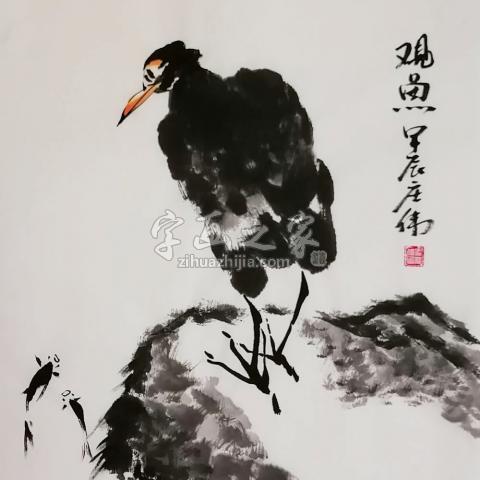 观鱼
甲辰庄伟
字画之家
zihuazhijia.com